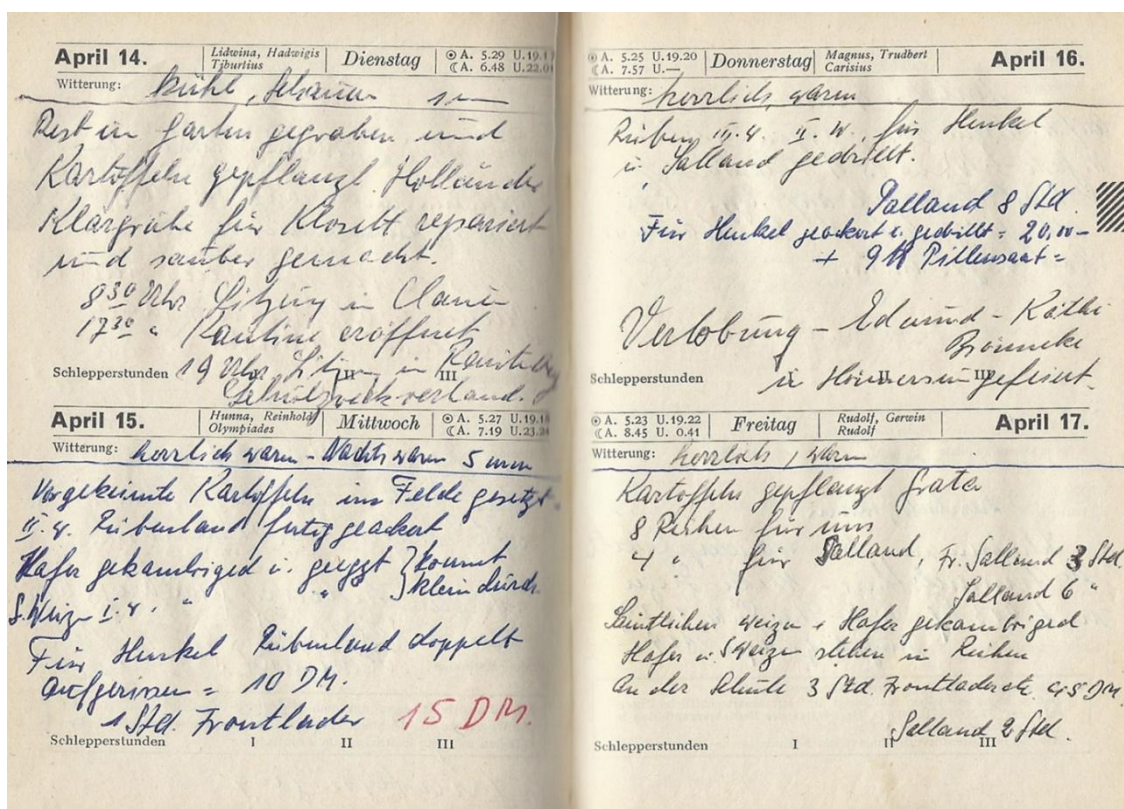 April 14.
Lidwina, Hadwigis
Tiburtius
Dienstag
A. 5.29 U.19.1
A. 6.48 U.22.0
Witterung: Kühl, Schauer
Rest im Garten gegraben und
Kartoffeln gepflanzt. Holländer
Klärgrube für Klosett repariert
und sauber gemacht.
8 30 Uhr Sitzung in Clauen
17 30 " Kantine eröffnet
19 Uhr Sitzung in
Schlepperstunden II III
April 15.
Hunna, Reinhold
Olympiades
Mittwoch
A. 5.27 U.19.1
A. 7.19 U.23.
Witterung: herrlich warm - Nachts warm 5 mm
Vorgekeimte Kartoffeln ins Felde gesetzt
Rübenland fertig geackert
Hafer gekambriged u. geeggt } kommt
S. Weizen I. " " } klein durch
Für Henkel Rübenland doppelt
aufgerissen = 10 DM.
1 Std. Frontlader 15 DM.
Schlepperstunden I II III
A. 5.25 U.19.20
A. 7.57 U.—
Donnerstag
Magnus, Trudbert
Carisius
April 16.
Witterung: herrlich, warm
Rüben für Henkel
u. Salland gedrillt.
Salland 8 Std.
Für Henkel geackert u. gedrillt = 20,00-
+ 9 Pillensaat =
Verlobung - Edmund - Käthi
Brönneke
Schlepperstunden II III
in gefeiert.
A. 5.23 U.19.22
A. 8.45 U. 0.41
Freitag
Rudolf, Gerwin
Rudolf
April 17.
Witterung: herrlich, warm
Kartoffeln gepflanzt Grata
8 Reihen für uns
4 " für Salland, Fr. Salland 3 Std.
Salland 6 "
Sämtlichen Weizen + Hafer gekambriged
Hafer u. S Weizen stehen in Reihen
An der Schule 3 Std. Frontlader 45 DM.
Salland 2 Std.
Schlepperstunden I II III